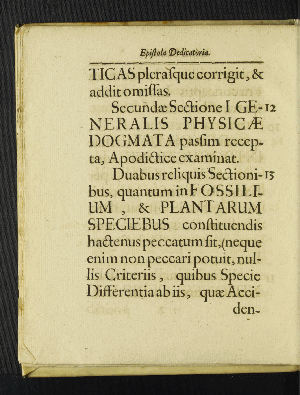 Epistola Dedicatoria.
TICAS plerasque corrigit, &
addit omissas.
Secundæ Sectione I GE- 12
NERALIS PHYSICÆ
DOGMATA passim recep-
ta, Apodictice examinat.
Duabus reliquis Sectioni- 13
bus, quantum in FOSSILI-
UM, & PLANTARUM
SPECIEBUS constituendis
hactenus peccatum sit, (neque
enim non peccari potuit, nul-
lis Criteriis, quibus Specie
Differentia ab iis, quæ Acci-
den-